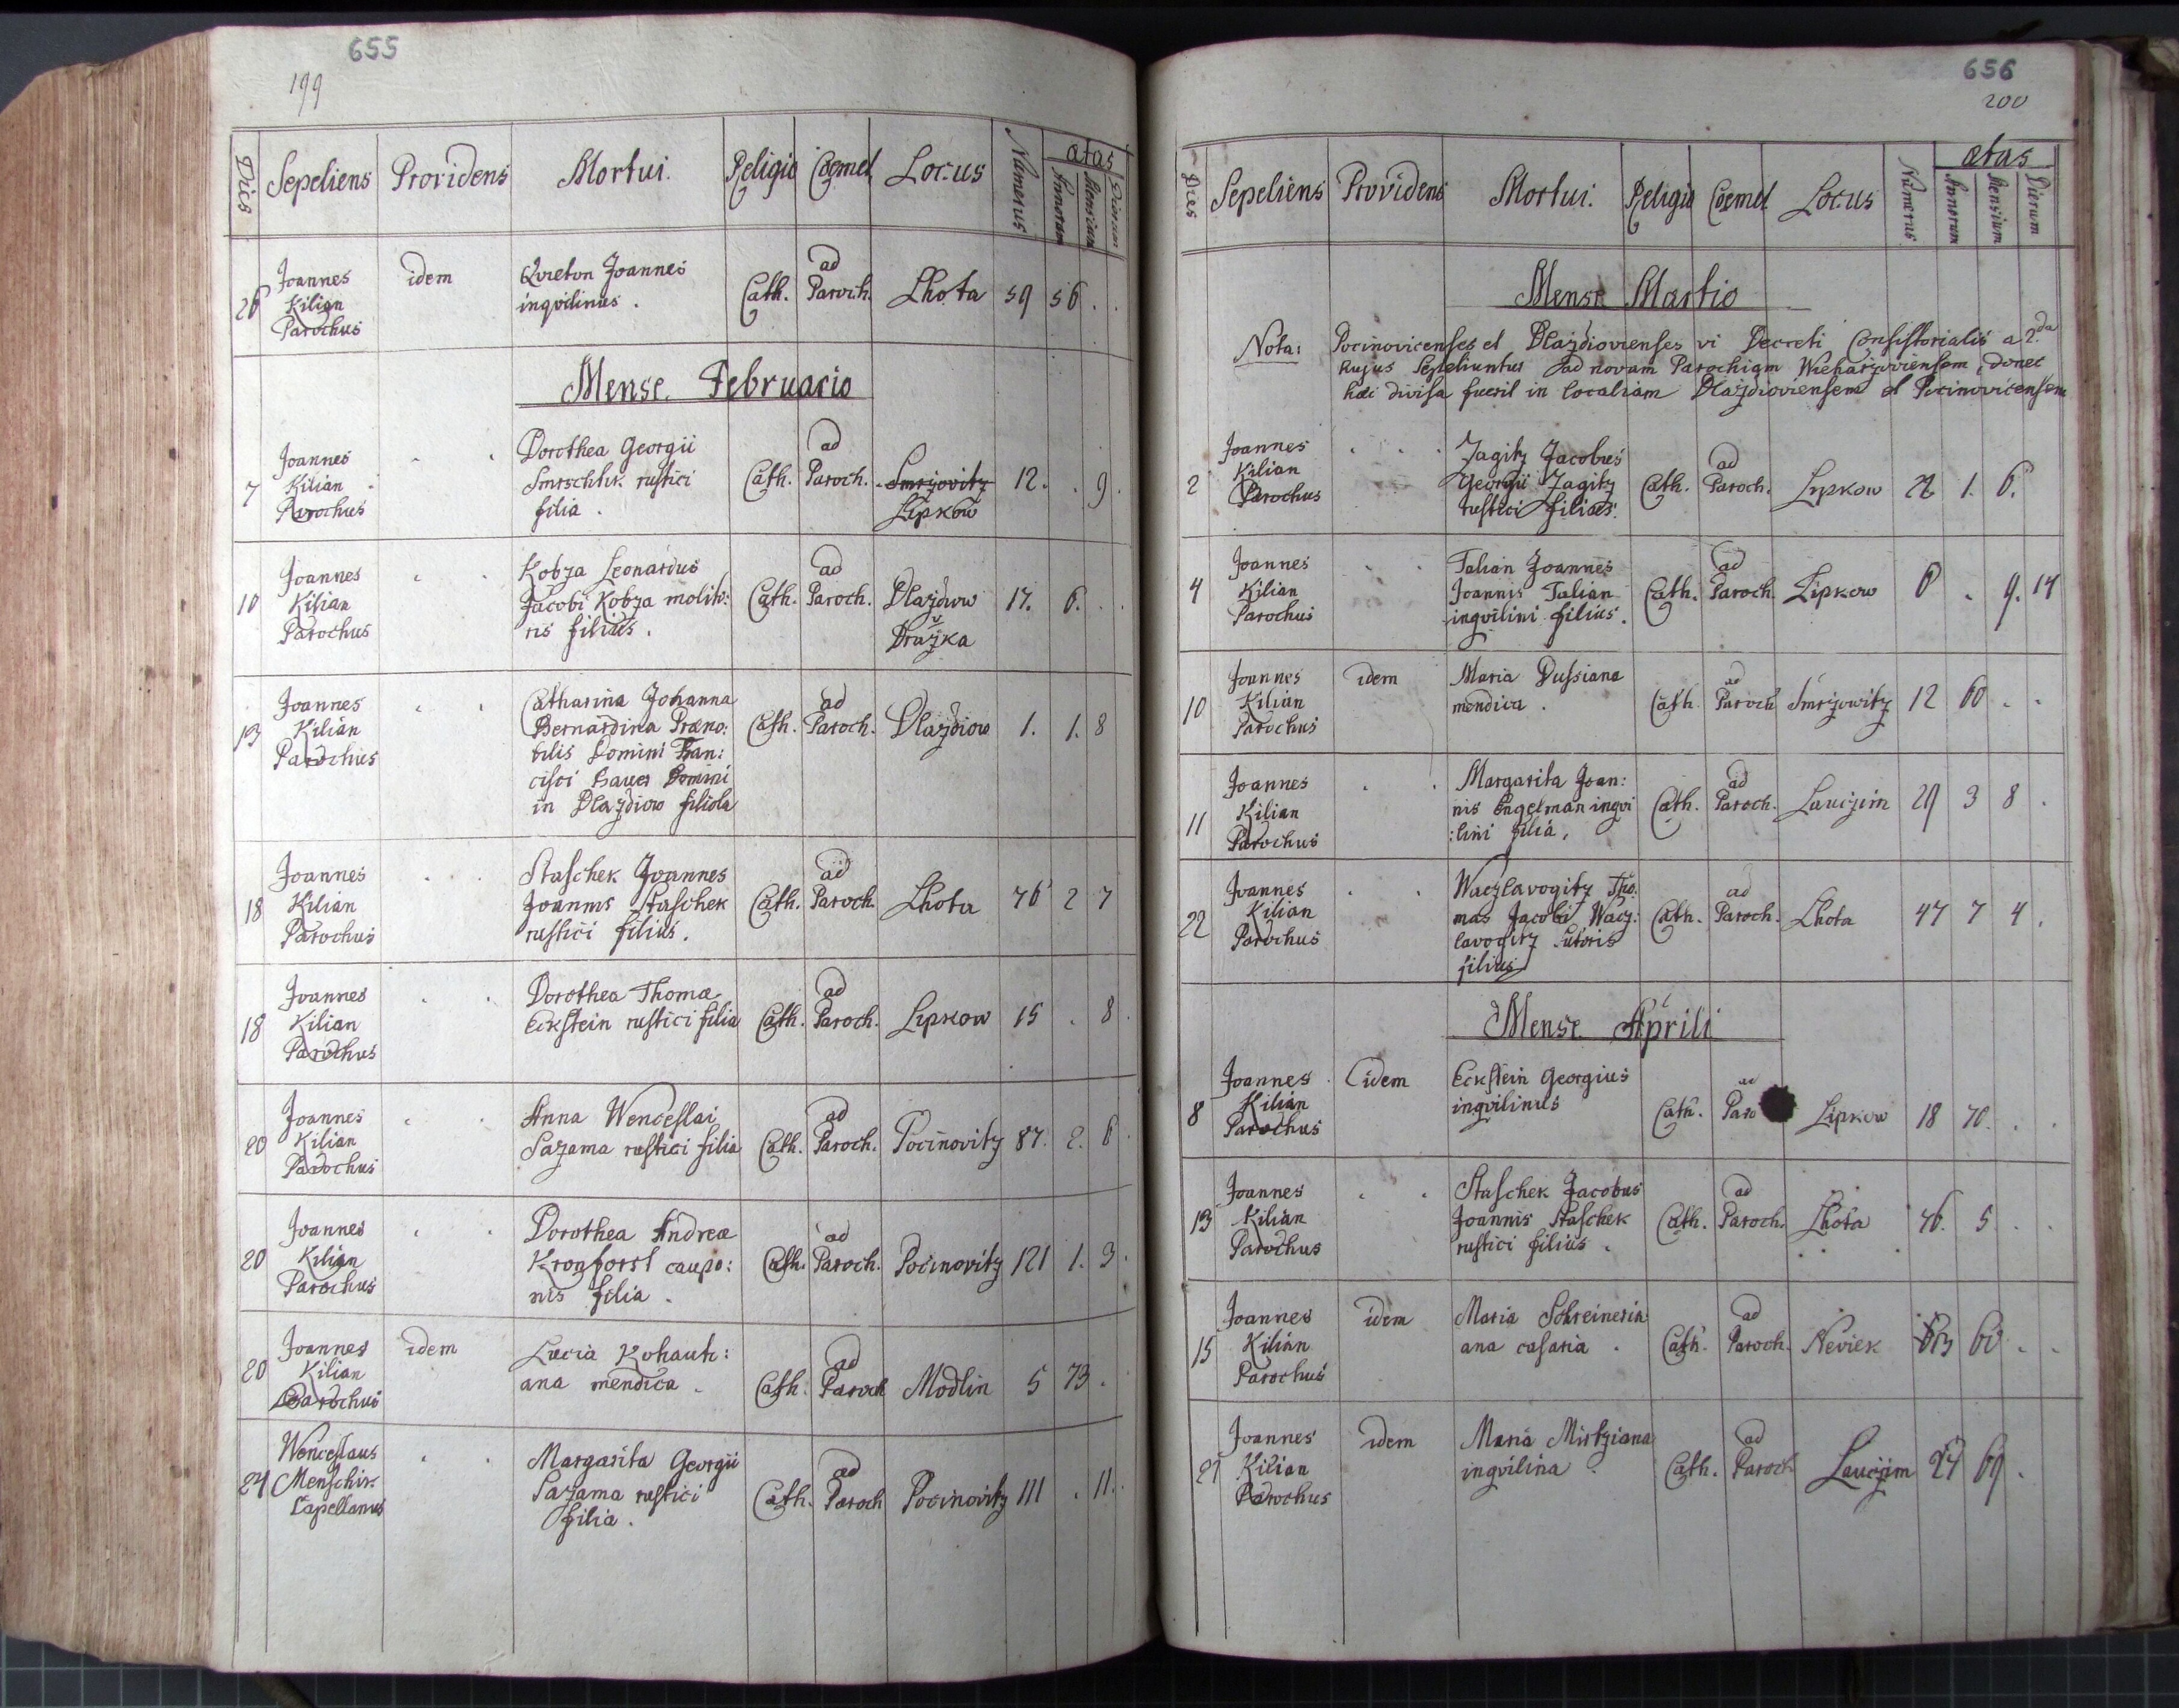 655
199
Dies Sepeliens Providens Mortui. Religio Coemet Locus Numerus ætas Annorum Mensium Dierum
26 Joannes Kilian Parochus idem Qvieton Joannes inqvilinus. Cath. ad Paroch. Lhota 59 56 . .
Mense Februario
7 Joannes Kilian Parochus . . Dorothea Georgii Smrschlik rustici filia. Cath. ad Paroch. Smrzovitz Lipkow 12. . 9.
10 Joannes Kilian Parochus . . Kobza Leonardus Jacobi Kobza molito: ris filius. Cath. ad Paroch. Dlazdiow Dražka 17. 6. . .
13 Joannes Kilian Parochus . . Catharina Johanna Bernardina Præno: bilis Domini Fran: cisci Bauer Domini in Dlazdiow filiola Cath. ad Paroch. Dlazdiow 1. 1. 8
18 Joannes Kilian Parochus . . Staschek Joannes Joannis Staschek rustici filius. Cath. ad Paroch. Lhota 46 2 7
18 Joannes Kilian Parochus . . Dorothea Thomæ Eckstein rustici filia Cath. ad Paroch. Lipkow 15 . 8.
20 Joannes Kilian Parochus . . Anna Wenceslai Sazama rustici filia Cath. ad Paroch. Pocinovitz 87. 2. 6.
20 Joannes Kilian Parochus . . Dorothea Andreæ Kronforst caupo: nis filia. Cath. ad Paroch. Pocinovitz 121 1. 3.
20 Joannes Kilian Parochus idem Lucia Kohaut: ana mendica. Cath. ad Paroch Modlin 5 73 .
24 Wenceslaus Menschik Capellanus . . Margarita Georgii Sazama rustici filia. Cath. ad Paroch Pocinovitz 111 . 11.
656
200
Dies Sepeliens Providens Mortui. Religio Coemet Locus Numerus ætas Annorum Mensium Dierum
Mense Martio
Nota: Pocinovicenses et Dlazdiovienses vi Decreti Consistorialis a 2.da
hujus Sepeliuntur ad novam Parochiam Wieharzoviensem, donec
hæc divisa fuerit in localiam Dlazdioviensem et Pocinovicensem
2 Joannes Kilian Parochus . . Jagitz Jacobus Georgii Jagitz rustici filius. Cath. ad Paroch. Lipkow 22 1. 6.
4 Joannes Kilian Parochus . . Talian Joannes Joannis Talian inqvilini filius. Cath. ad Paroch. Lipkow 6 . 9. 14
10 Joannes Kilian Parochus idem Maria Dussiana mendica. Cath. ad Paroch Smrzowitz 12 60 . .
11 Joannes Kilian Parochus . . Margarita Joan: nis Engelman inqvi :lini filia. Cath. ad Paroch. Lauczim 29 3 8 .
22 Joannes Kilian Parochus . . Waczlavogitz Tho: mas Jacobi Wacz: lavogitz Sutoris filius Cath. ad Paroch. Lhota 47 7 4.
Mense Aprili
8 Joannes Kilian Parochus idem Eckstein Georgius inqvilinus Cath. ad Paro Lipkow 18 70. . .
13 Joannes Kilian Parochus . . Staschek Jacobus Joannis Staschek rustici filius. Cath. ad Paroch. Lhota 46. 5 . .
15 Joannes Kilian Parochus idem Maria Schreinerin ana casaria. Cath. ad Paroch. Neviek 60 . .
21 Joannes Kilian Parochus idem Maria Mirtziana inqvilina. Cath. ad Paroch Lauczim 27 69 .